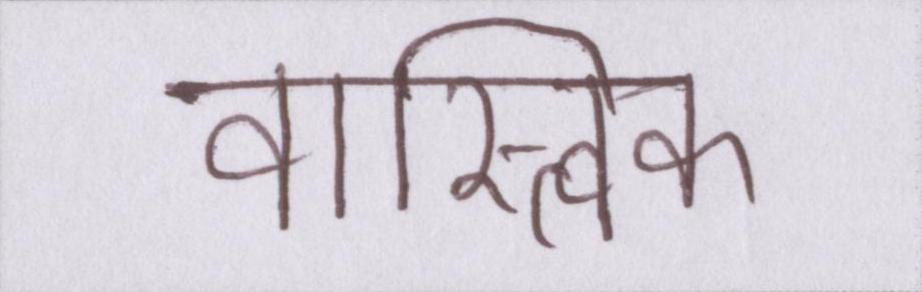 वास्त्विक